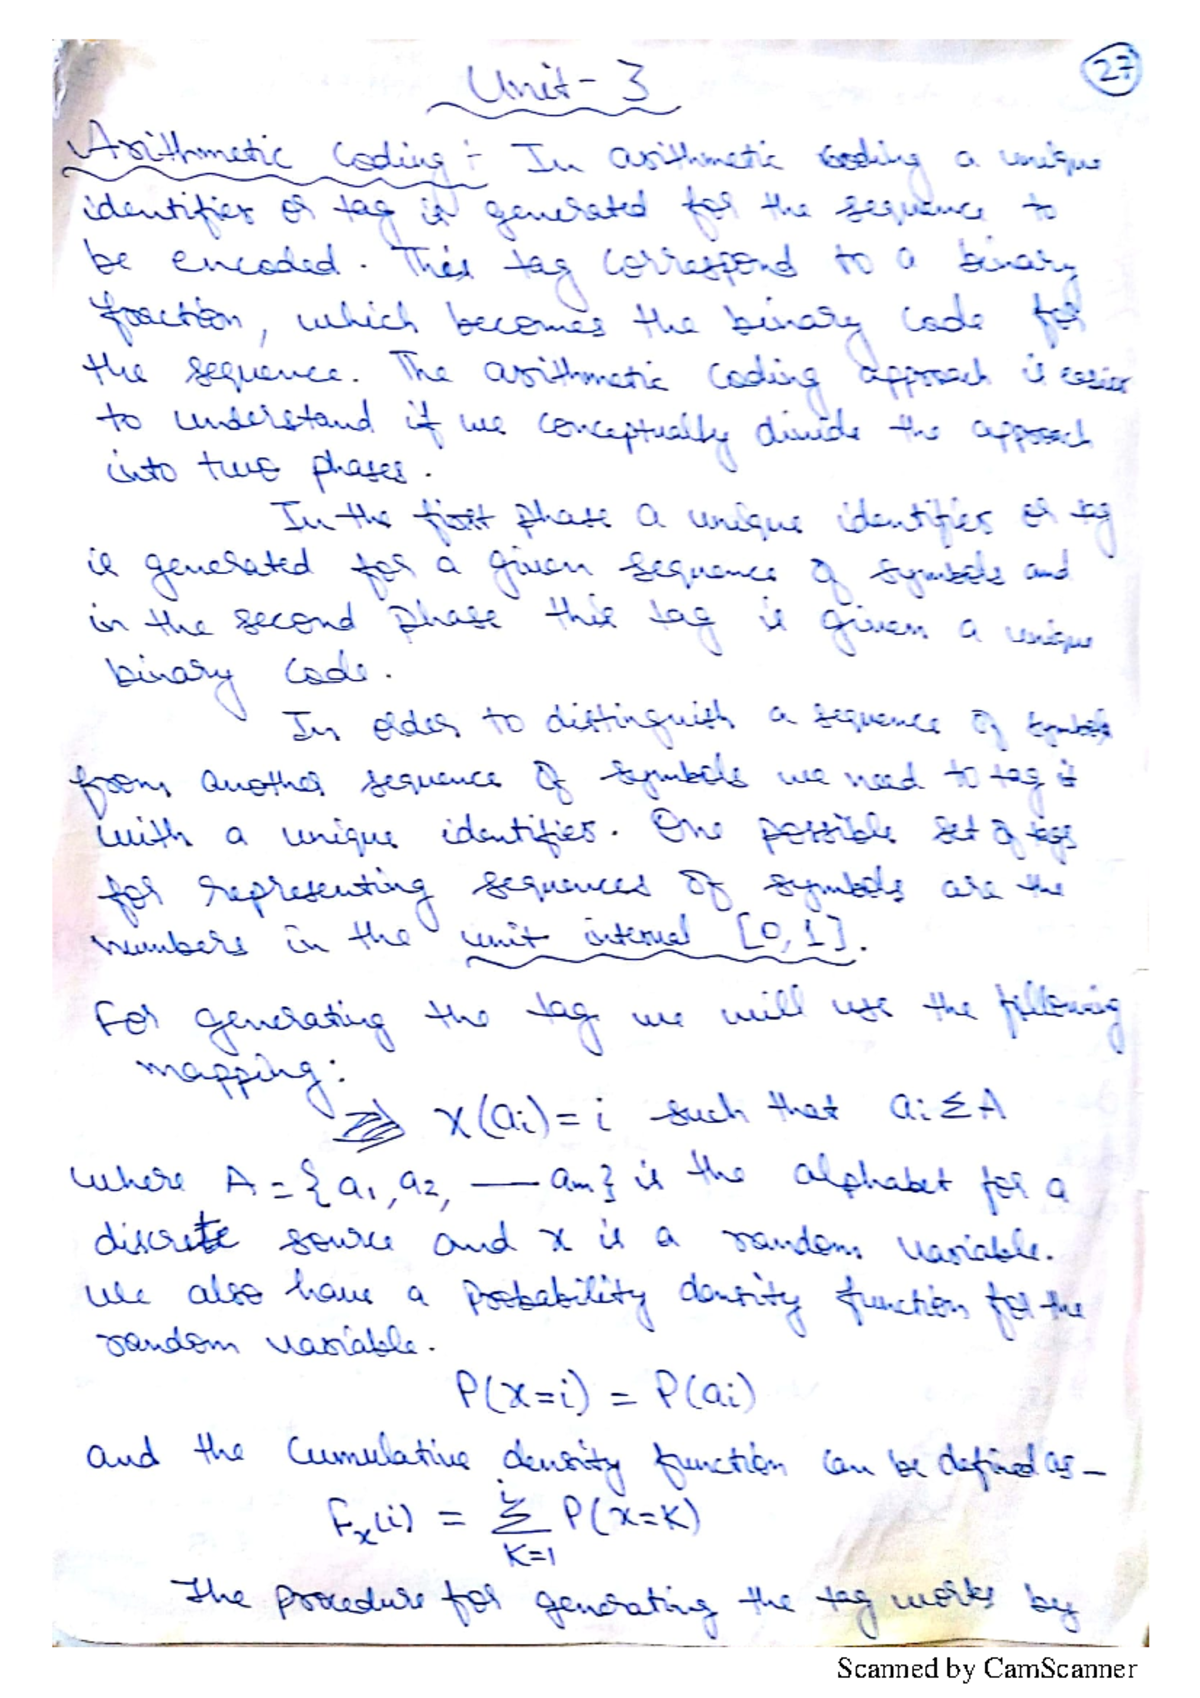 27
Unit - 3
Arithmetic Coding :- In arithmetic coding a unique
identifier or tag is generated for the sequence to
be encoded. This tag correspond to a binary
fraction, which becomes the binary code for
the sequence. The arithmetic coding approach is easier
to understand if we conceptually divide the approach
into two phases.
In the first phase a unique identifier or tag
is generated for a given sequence of symbols and
in the second phase this tag is given a unique
binary code.
In order to distinguish a sequence of symbols
from another sequence of symbols we need to tag it
with a unique identifier. One possible set of tags
for representing sequences of symbols are the
numbers in the unit interval [0, 1].
For generating the tag we will use the following
mapping:
x(ai) = i such that ai Σ A
where A = {a1, a2, — am} is the alphabet for a
discrete source and x is a random variable.
We also have a probability density function for the
random variable.
P(x=i) = P(ai)
and the Cumulative density function can be defined as -
Fx(i) = i Σ K=1 P(x=K)
The procedure for generating the tag works by
Scanned by CamScanner